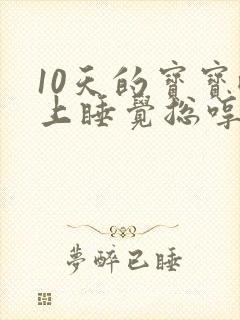 10天的寶寶
上睡覺總哼
夢醉已睡